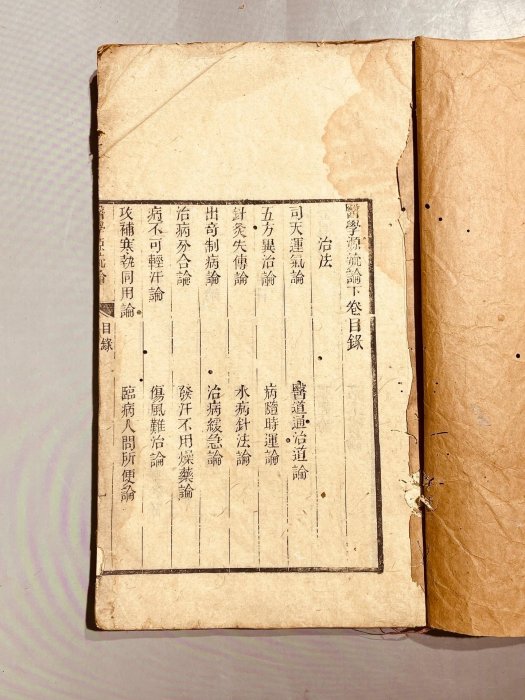 醫學源流論下卷目錄
治法
司天運氣論 醫道通治道論
五方異治論 病隨時運論
針灸失傳論 水病針法論
出奇制病論 治病緩急論
治病分合論 發汗不用燥藥論
病不可輕汗論 傷風難治論
攻補寒熱同用論 臨病人問所便論
醫學源流論 目錄